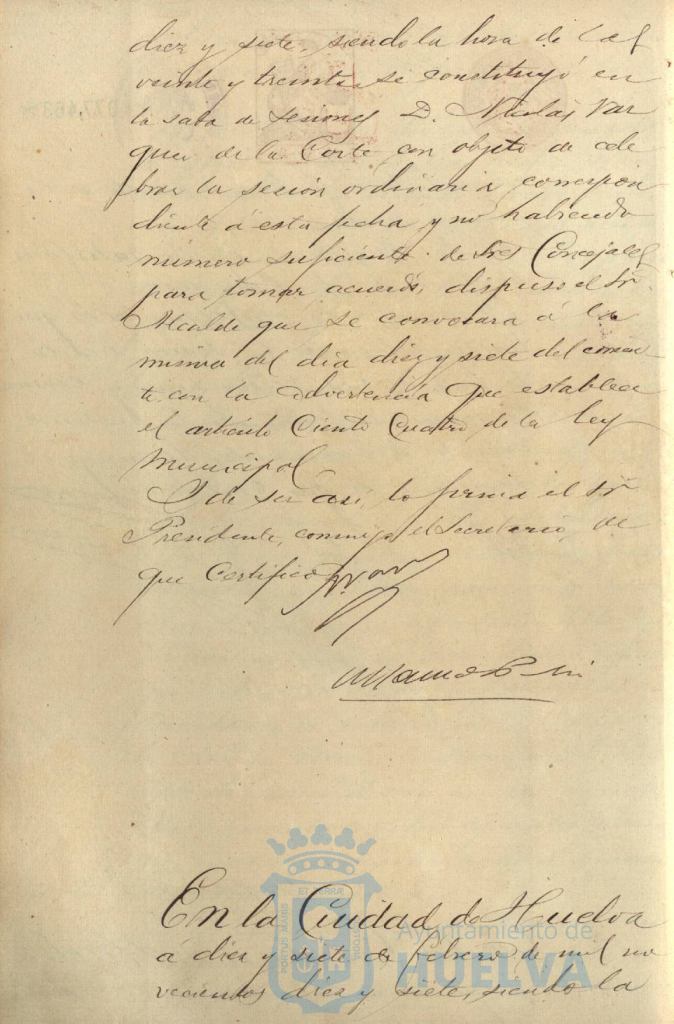 diez y siete, siendo la hora de las
veinte y treinta se constituyó en
la sala de sesiones D. Nicolas Var
quez de la Corte con objeto de cele
brar la sesión ordinaria correspon
diente á esta fecha y no habiendo
número suficiente de Sres Concejales
para tomar acuerdo, dispuso el Sr
Alcalde que se convocara á la
misma del dia diez y siete del corrien
te con la advertencia que establece
el artículo Ciento Cuatro de la ley
Municipal
Y de ser así, lo firma el Sr
Presidente, conmigo el Secretario, de
que Certifico
En la Ciudad de Huelva
á diez y siete de febrero de mil no
vecientos diez y siete, siendo la
Ayuntamiento de
HUELVA
PORTUS MARIS
ET TERRÆ
CUSTODIA
077,463